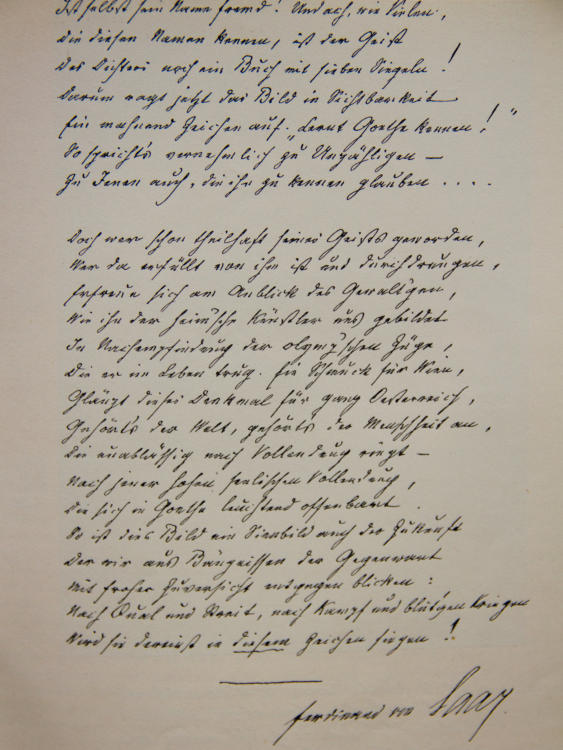 Ist selbst sein Name fremd! Und ach, wie Vielen,
Die diesen Namen kennen, ist der Geist
Des Dichters noch ein Buch mit sieben Siegeln!
Darum ragt jetzt das Bild in Sichtbarkeit
Ein mahnend Zeichen auf. „Lernt Goethe kennen!"
So spricht's vernehmlich zu Unzähligen —
Zu Jenen auch, die ihn zu kennen glauben ....
Doch wer schon theilhaft seines Geists geworden,
Wer da erfüllt von ihm ist und durchdrungen,
Erfreue sich am Anblick des Gewalt'gen,
Wie ihn der heim'sche Künstler uns gebildet
In Nachempfindung der olymp'schen Züge,
Die er im Leben trug. Ein Schmuck für Wien,
Glänzt dieses Denkmal für ganz Oesterreich,
Gehört's der Welt, gehört's der Menschheit an,
Die unablässig nach Vollendung ringt —
Nach jener hohen seelischen Vollendung,
Die sich in Goethe leuchtend offenbart.
So ist dies Bild ein Sinnbild auch der Zukunft
Der wir aus Bängnissen der Gegenwart
Mit froher Zuversicht entgegen blicken:
Nach Qual und Streit, nach Kampf und blut'gen Kriegen
Wird sie dereinst in diesem Zeichen siegen!
Ferdinand von Saar.